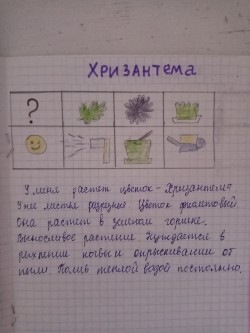 Хризантема
?
У меня растет цветок - Хризантема
У нее листья разрезные Цветок фиолетовый.
Она растет в зеленом горшке.
Выносливое растение. Нуждается в
рыхлении почвы и опрыскивании от
пыли. Полив теплой водой постоянно.